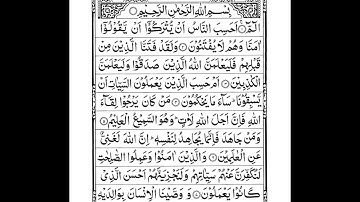 بِسْمِ اللهِ الرَّحْمٰنِ الرَّحِيْمِ
الٓمّٓ ۚ اَحَسِبَ النَّاسُ اَنْ يُّتْرَكُوْۤا اَنْ يَّقُوْلُوْۤا
اٰمَنَّا وَهُمْ لَا يُفْتَنُوْنَ ۝ وَلَقَدْ فَتَنَّا الَّذِيْنَ مِنْ
قَبْلِهِمْ فَلَيَعْلَمَنَّ اللهُ الَّذِيْنَ صَدَقُوْا وَلَيَعْلَمَنَّ
الْكٰذِبِيْنَ ۝ اَمْ حَسِبَ الَّذِيْنَ يَعْمَلُوْنَ السَّيِّاٰتِ اَنْ
يَّسْبِقُوْنَا ؕ سَآءَ مَا يَحْكُمُوْنَ ۝ مَنْ كَانَ يَرْجُوْا لِقَآءَ
اللهِ فَاِنَّ اَجَلَ اللهِ لَاٰتٍ ؕ وَهُوَ السَّمِيْعُ الْعَلِيْمُ ۝
وَمَنْ جَاهَدَ فَاِنَّمَا يُجَاهِدُ لِنَفْسِهٖ ؕ اِنَّ اللهَ لَغَنِيٌّ
عَنِ الْعٰلَمِيْنَ ۝ وَالَّذِيْنَ اٰمَنُوْا وَعَمِلُوا الصّٰلِحٰتِ
لَنُكَفِّرَنَّ عَنْهُمْ سَيِّاٰتِهِمْ وَلَنَجْزِيَنَّهُمْ اَحْسَنَ الَّذِيْ
كَانُوْا يَعْمَلُوْنَ ۝ وَوَصَّيْنَا الْاِنْسَانَ بِوَالِدَيْهِ